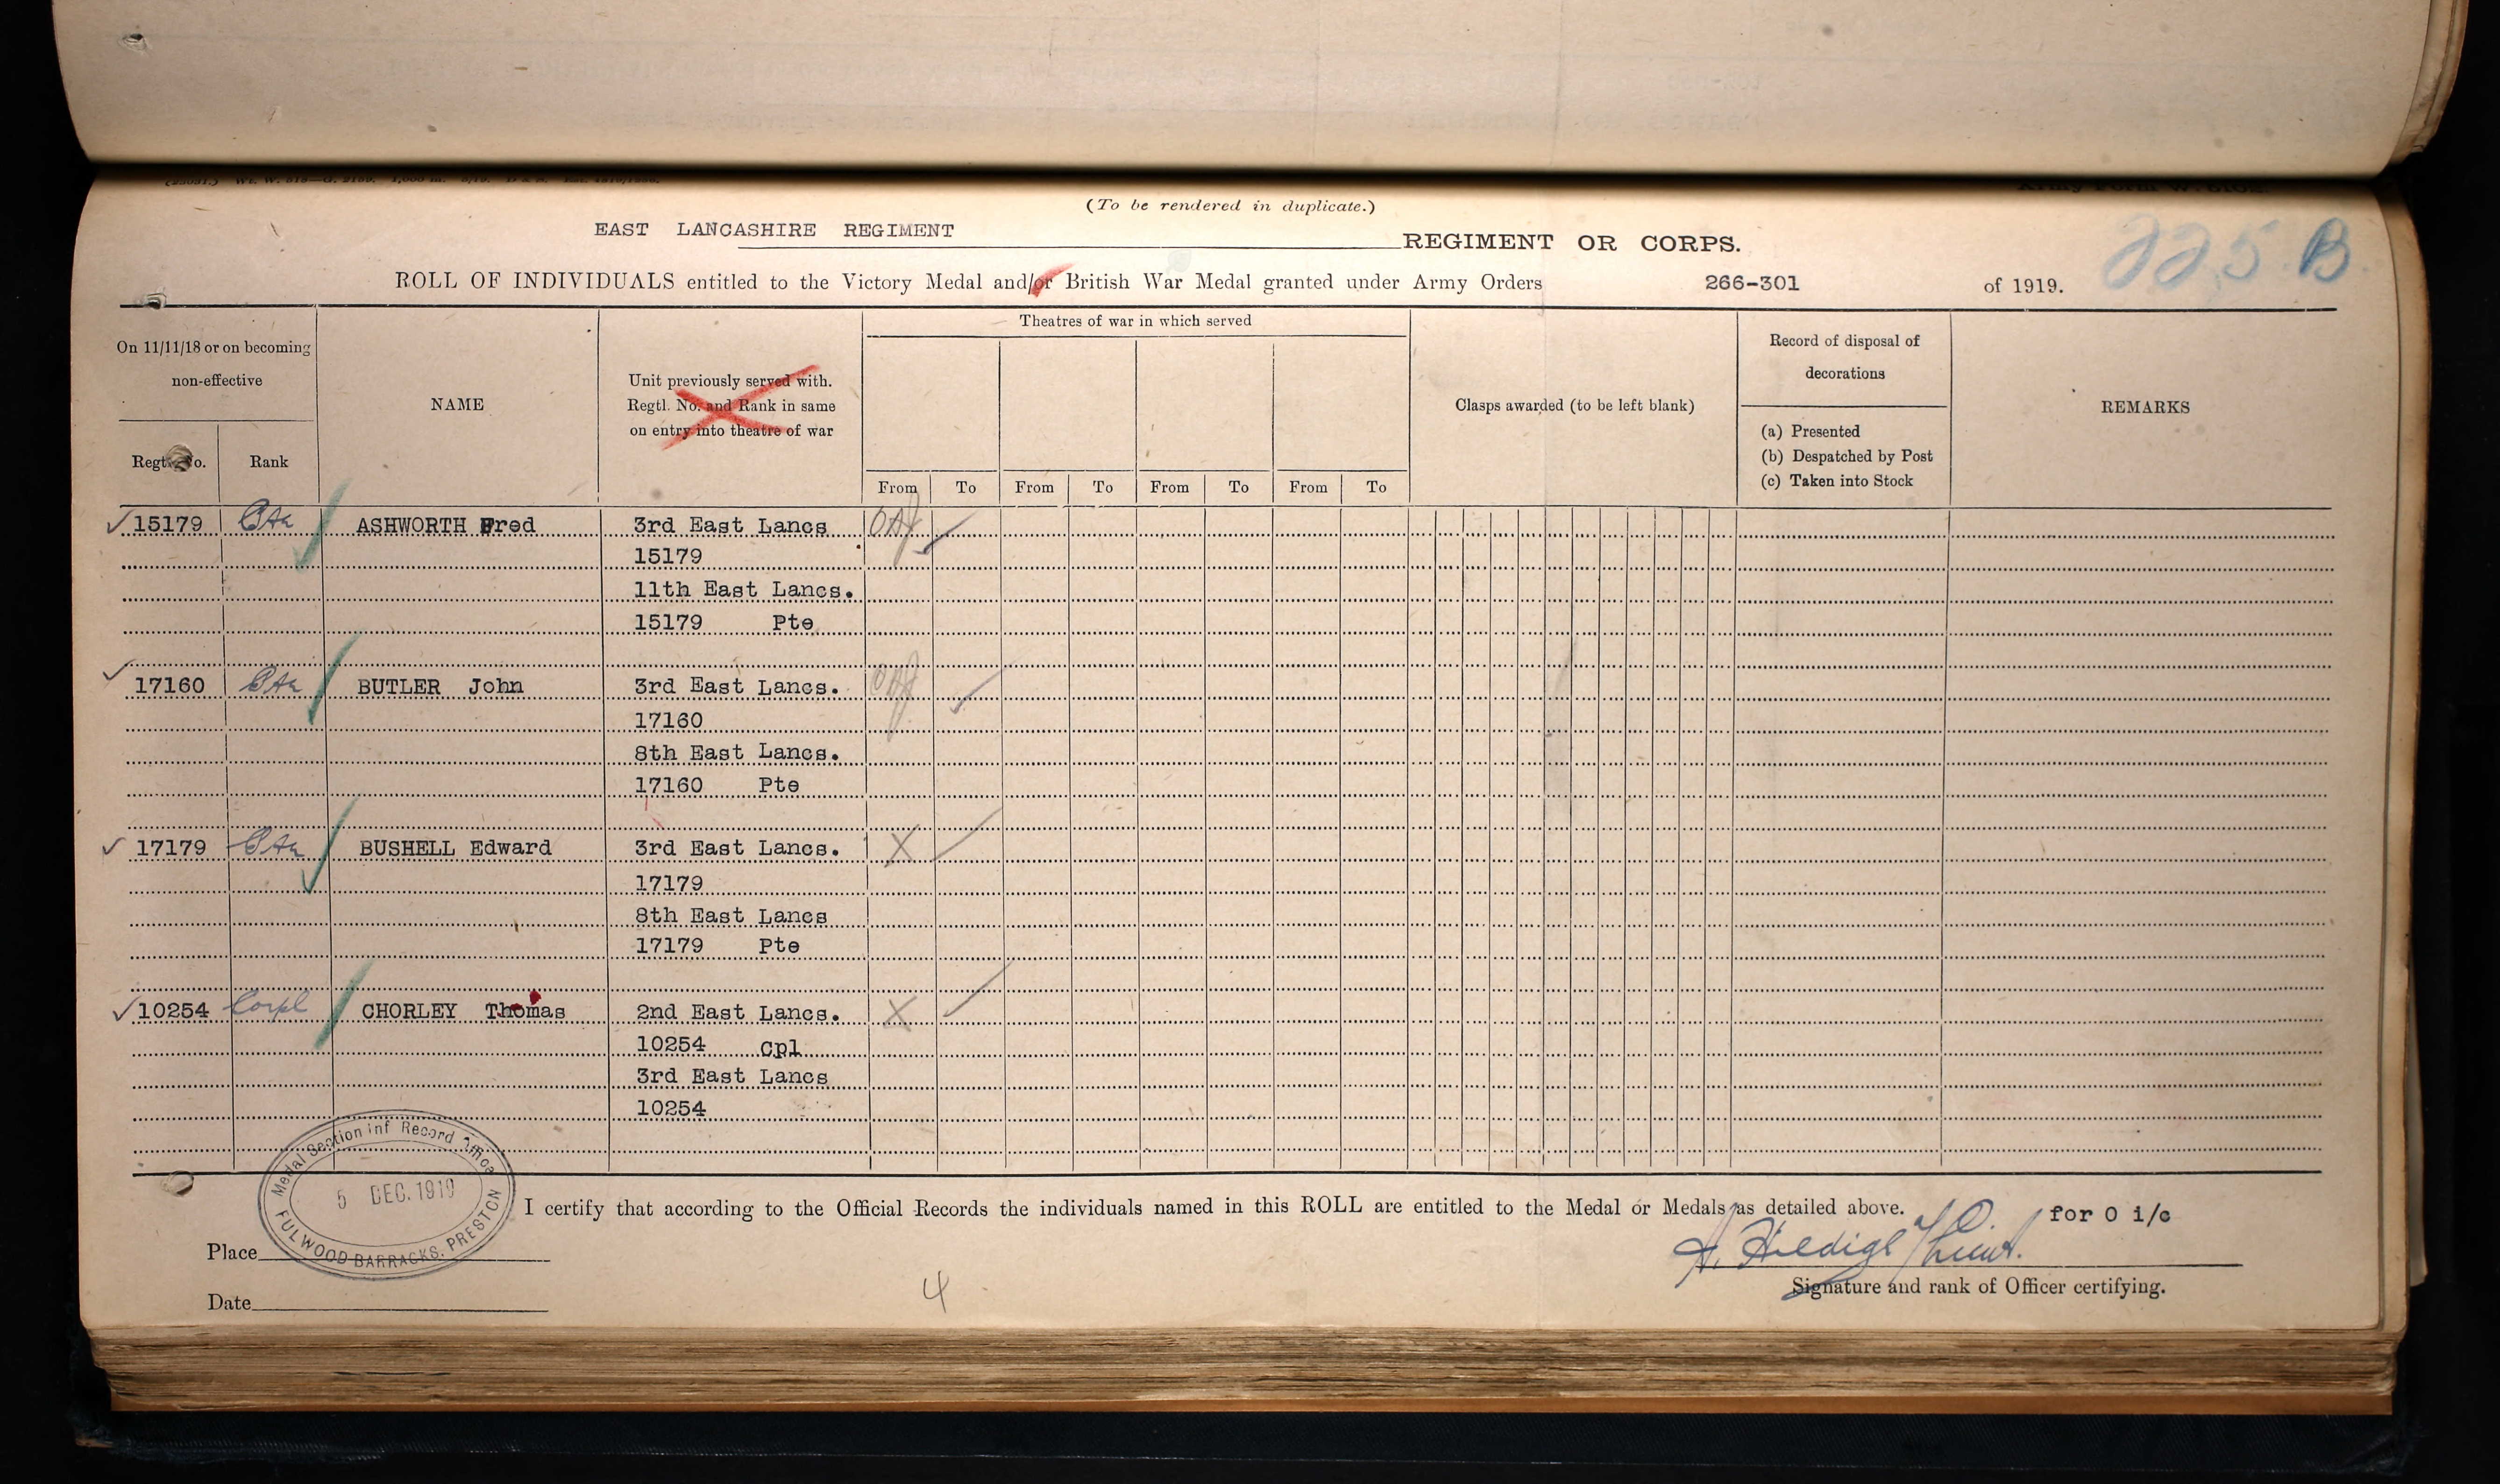 (To be rendered in duplicate.)
EAST LANCASHIRE REGIMENT REGIMENT OR CORPS.
225 B
ROLL OF INDIVIDUALS entitled to the Victory Medal and/or British War Medal granted under Army Orders 266-301 of 1919.
On 11/11/18 or on becoming non-effective
Regtl. No.
Rank
NAME
Unit previously served with.
Regtl. No. and Rank in same
on entry into theatre of war
Theatres of war in which served
From To From To From To From To
Clasps awarded (to be left blank)
Record of disposal of decorations
(a) Presented
(b) Despatched by Post
(c) Taken into Stock
REMARKS
15179 ASHWORTH Fred 3rd East Lancs
15179
11th East Lancs.
15179 Pte
17160 BUTLER John 3rd East Lancs.
17160
8th East Lancs.
17160 Pte
17179 BUSHELL Edward 3rd East Lancs. X
17179
8th East Lancs
17179 Pte
10254 Corpl CHORLEY Thomas 2nd East Lancs. X
10254 Cpl
3rd East Lancs
10254
Medal Section Inf Record Office
5 DEC. 1919
FULWOOD BARRACKS. PRESTON
I certify that according to the Official Records the individuals named in this ROLL are entitled to the Medal or Medals as detailed above.
for O i/c
Lieut.
Place
Signature and rank of Officer certifying.
Date
4